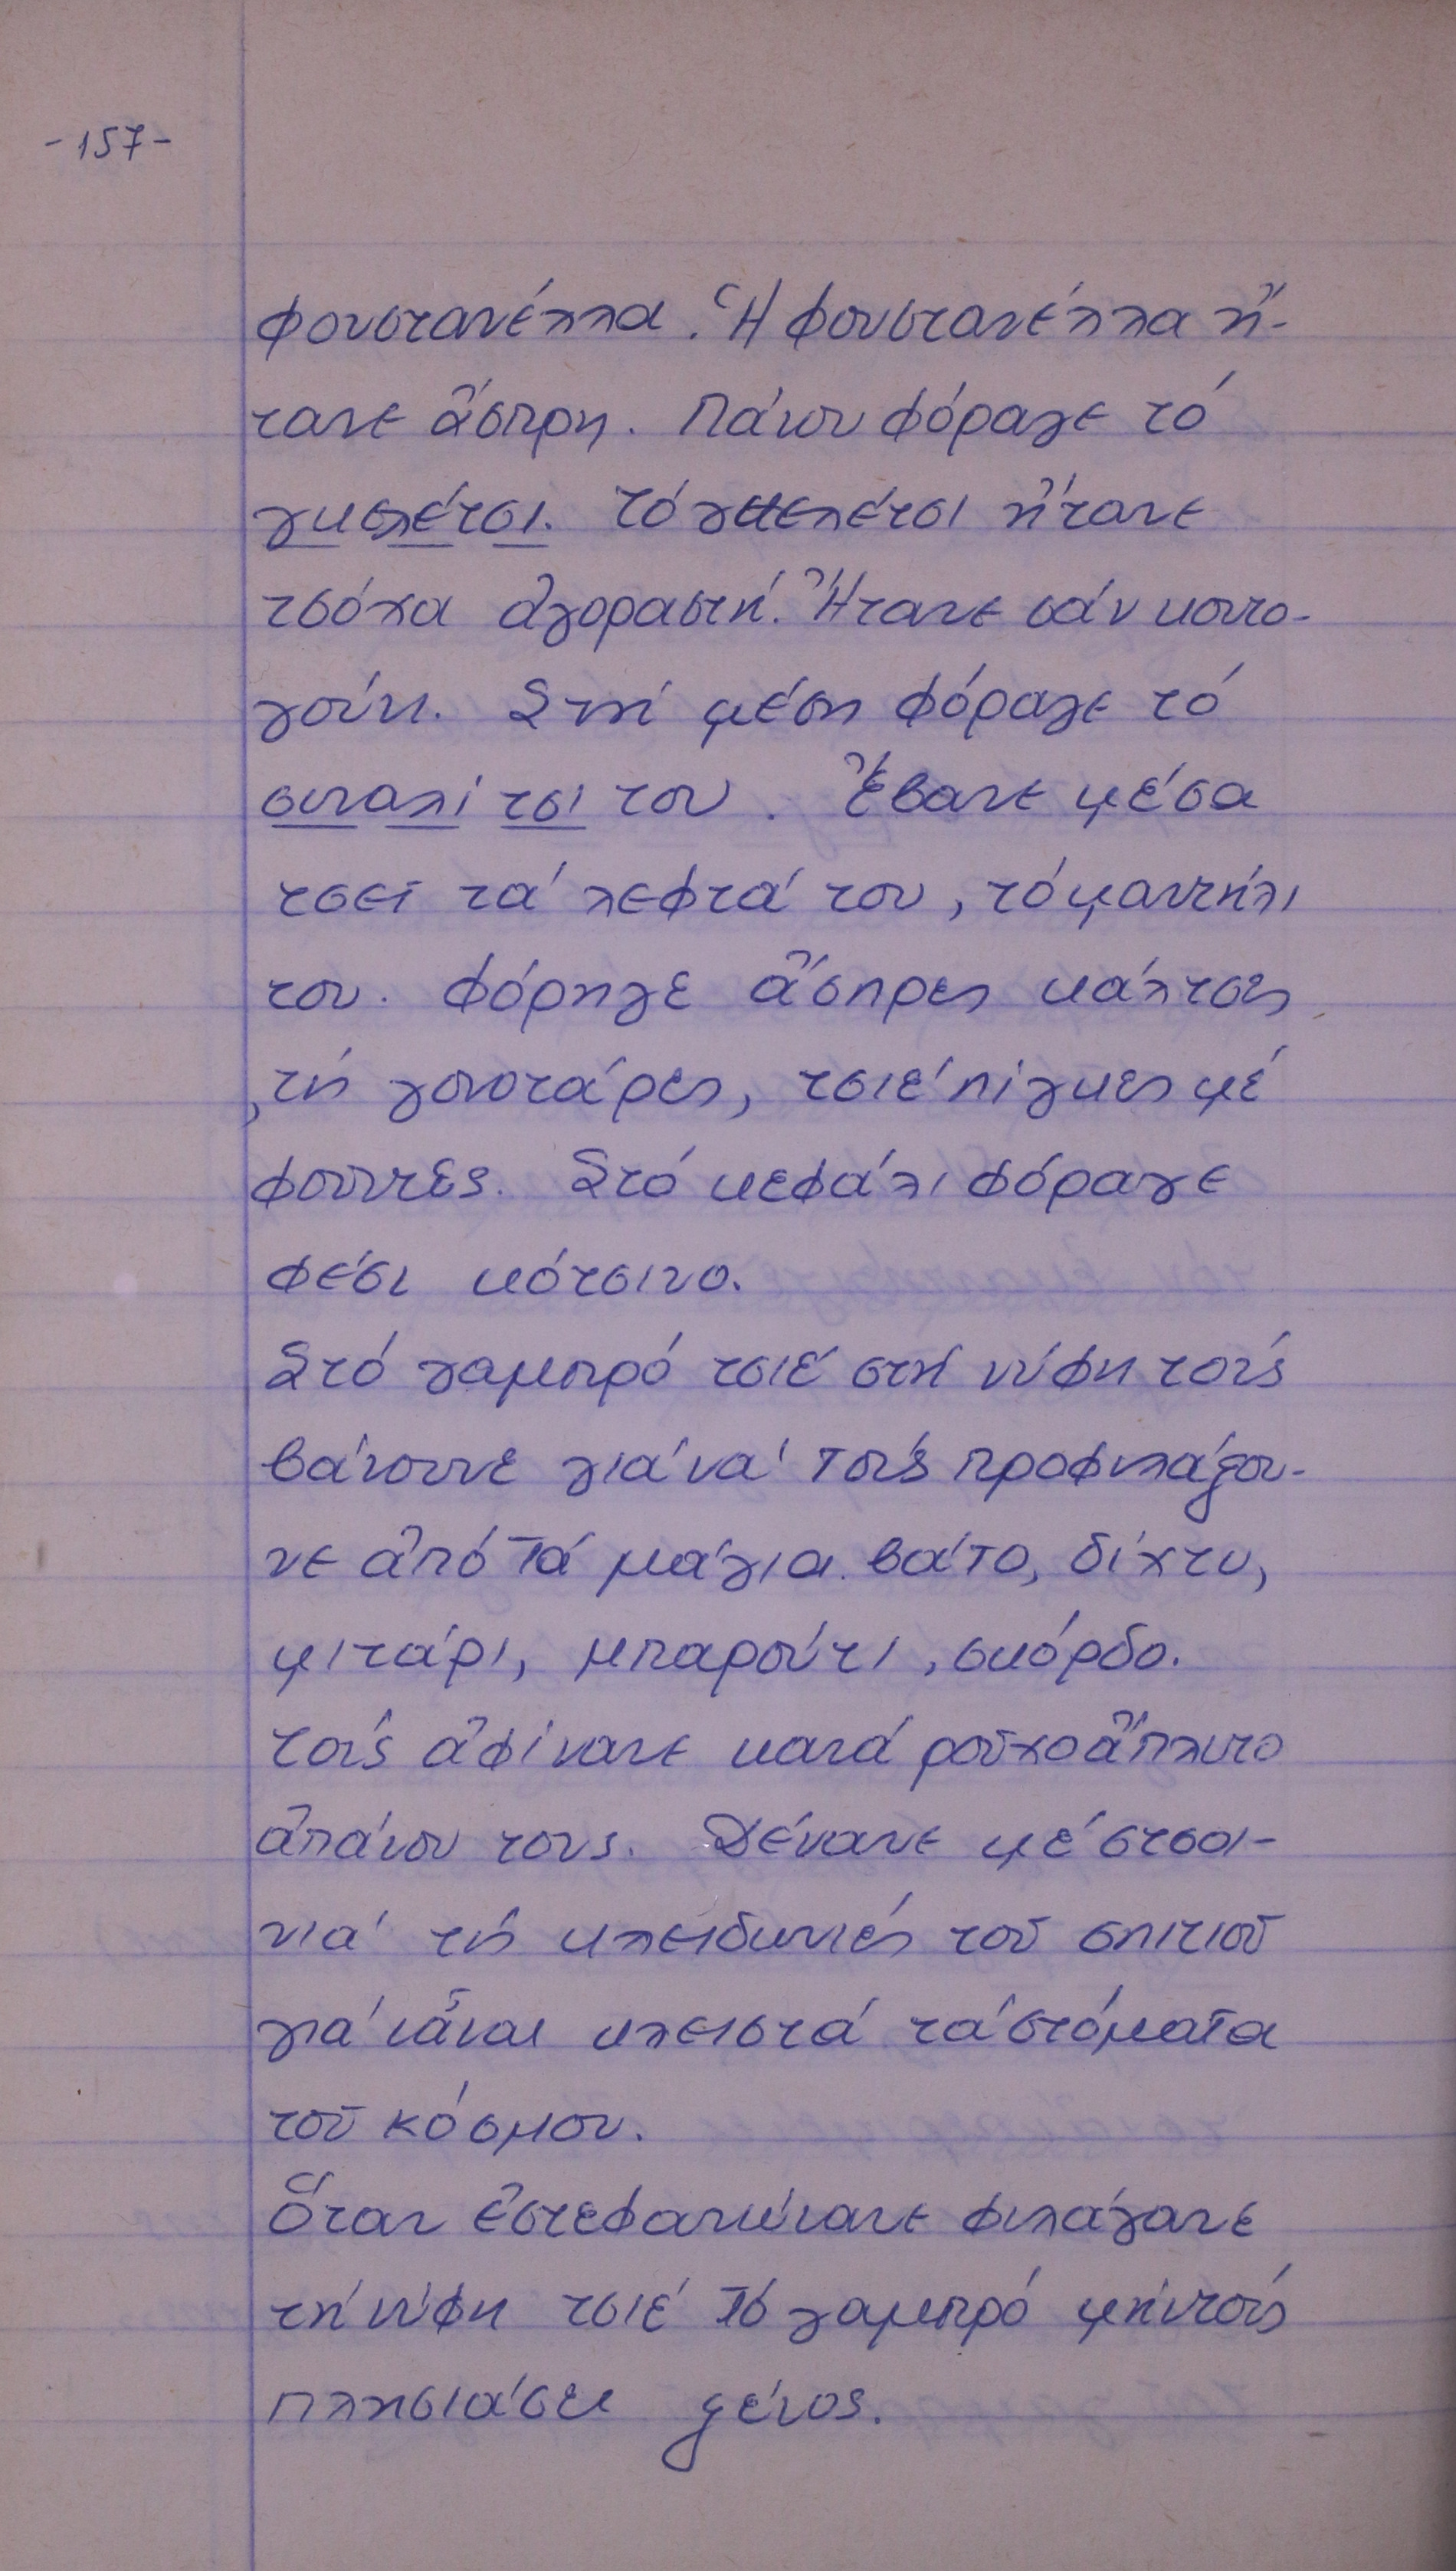 -157-
φουστανέλλα. Ἡ φουστανέλλα ἤ-
τανε ἄσπρη. Πάνου φόραγε τό
γκελέτσι. Τό γκελέτσι ἤτανε
τσόχα ἀγοραστή. Ἤτανε σάν κοντο-
γούνι. Στή μέση φόραγε τό
σιναλίτσι του. Ἔβανε μέσα
τσεῖ τά λεφτά του, τό μαντήλι
του. Φόρηγε ἄσπρες κάλτσες
, τίς γονατάρες, τσιέ πίγκες μέ
φοῦντες. Στό κεφάλι φόραγε
φέσι κότσινο.
Στό γαμπρό τσιέ στή νύφη τούς
βάνουνε γιά νά τούς προφυλάξου-
νε ἀπό τά μάγια βάτο, δίχτυ,
μιτάρι, μπαρούτι, σκόρδο.
Τούς ἀφίνανε κανά ροῦχο ἄπλυτο
ἀπάνου τους. Δένανε μέ στσοι-
νιά τίς κλειδωνιές τοῦ σπιτιοῦ
γιά νἆναι κλειστά τά στόματα
τοῦ κόσμου.
Ὅταν ἐστεφανώνανε φυλάγανε
τή νύφη τσιέ τό γαμπρό μήν τούς
πλησιάσει ξένος.